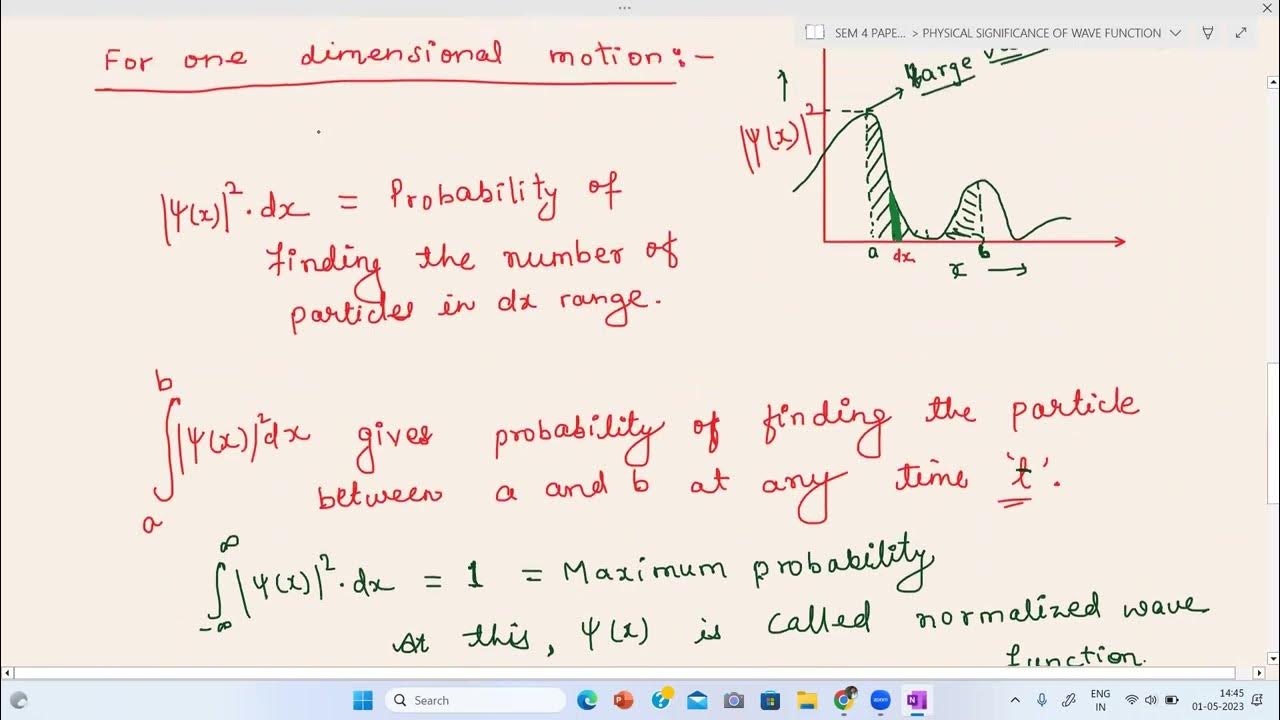 SEM 4 PAPE... > PHYSICAL SIGNIFICANCE OF WAVE FUNCTION
For one dimensional motion:-
large
|Ψ(x)|²
a dx b
x
|Ψ(x)|²·dx = Probability of
finding the number of
particles in dx range.
∫ₐᵇ |Ψ(x)|²dx gives probability of finding the particle
between a and b at any time 't'.
∫₋∞^∞ |Ψ(x)|²·dx = 1 = Maximum probability
At this, Ψ(x) is called normalized wave
function.
Search
zoom
ENG
IN
14:45
01-05-2023